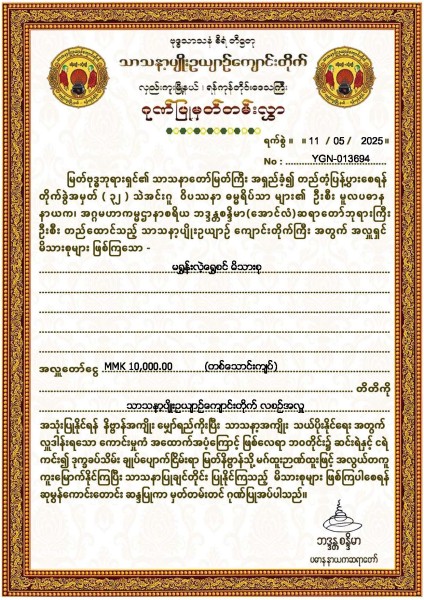 ဗုဒ္ဓသာသနံ စိရံ တိဋ္ဌတု
သာသနာ့မျိုးဥယျာဉ်ကျောင်းတိုက်
လှည်းကူးမြို့နယ် ၊ ရန်ကုန်တိုင်းဒေသကြီး
ဂုဏ်ပြုမှတ်တမ်းလွှာ
ရက်စွဲ ။ ။ 11 / 05 / 2025။
No : YGN-013694
မြတ်ဗုဒ္ဓဘုရားရှင်၏ သာသနာတော်မြတ်ကြီး အရှည်ခံ၍ တည်တံ့ပြန့်ပွားစေရန်
တိုက်ခွဲအမှတ် ( ၃၂ ) သဲအင်းဂူ ဝိပဿနာ ဓမ္မရိပ်သာ များ၏ ဦးစီး မူလပဓာန
နာယက၊ အဂ္ဂမဟာကမ္မဋ္ဌာနာစရိယ ဘဒ္ဒန္တစန္ဒိမာ(အောင်လံ)ဆရာတော်ဘုရားကြီး
ဦးစီး တည်ထောင်သည့် သာသနာ့မျိုးဥယျာဉ် ကျောင်းတိုက်ကြီး အတွက် အလှူရှင်
မိသားစုများ ဖြစ်ကြသော -
မရွှန်းလဲ့ရွှေစင် မိသားစု
အလှူတော်ငွေ MMK 10,000.00 (တစ်သောင်းကျပ်)
တိတိကို
သာသနာ့မျိုးဥယျာဉ်ကျောင်းတိုက် လစဉ်အလှူ
အသုံးပြုနိုင်ရန် နိဗ္ဗာန်အကျိုး မျှော်ရည်ကိုးပြီး သာသနာ့အကျိုး သယ်ပိုးနိုင်ရေး အတွက်
လှူဒါန်းရသော ကောင်းမှုကံ အထောက်အပံ့ကြောင့် ဖြစ်လေရာ ဘဝတိုင်း၌ ဆင်းရဲနှင့် ငရဲ
ကင်း၍ ဒုက္ခခပ်သိမ်း ချုပ်ပျောက်ငြိမ်းရာ မြတ်နိဗ္ဗာန်သို့ မဂ်ထူးဉာဏ်ထူးဖြင့် အလွယ်တကူ
ကူးမြောက်နိုင်ကြပြီး သာသနာပြုချင်တိုင်း ပြုနိုင်ကြသည့် မိသားစုများ ဖြစ်ကြပါစေရန်
ဆုမွန်ကောင်းတောင်း ဆန္ဒပြုကာ မှတ်တမ်းတင် ဂုဏ်ပြုအပ်ပါသည်။
ဘဒ္ဒန္တစန္ဒိမာ
ပဓာနနာယကဆရာတော်